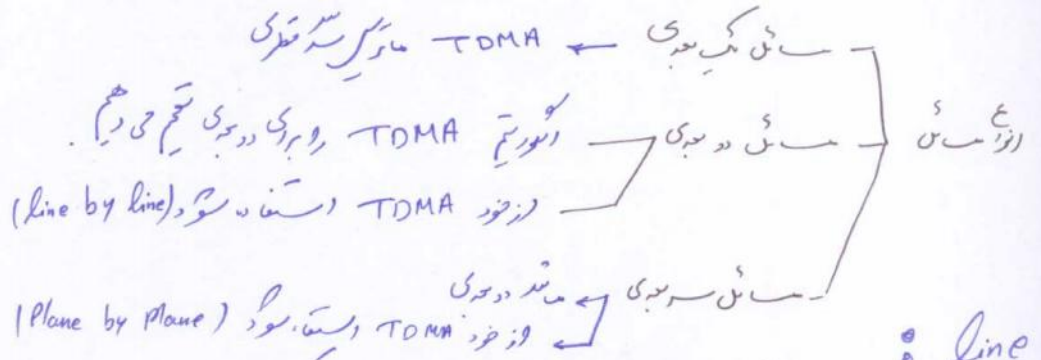 مسائل یک بعدی ← TDMA ماتریس سه قطری
انواع مسائل
مسائل دو بعدی
الگوریتم TDMA را برای دو بعدی تعمیم می دهیم.
از خود TDMA استفاده شود (line by line)
مسائل سه بعدی
مانند دو بعدی
از خود TDMA استفاده شود (Plane by Plane)
line :